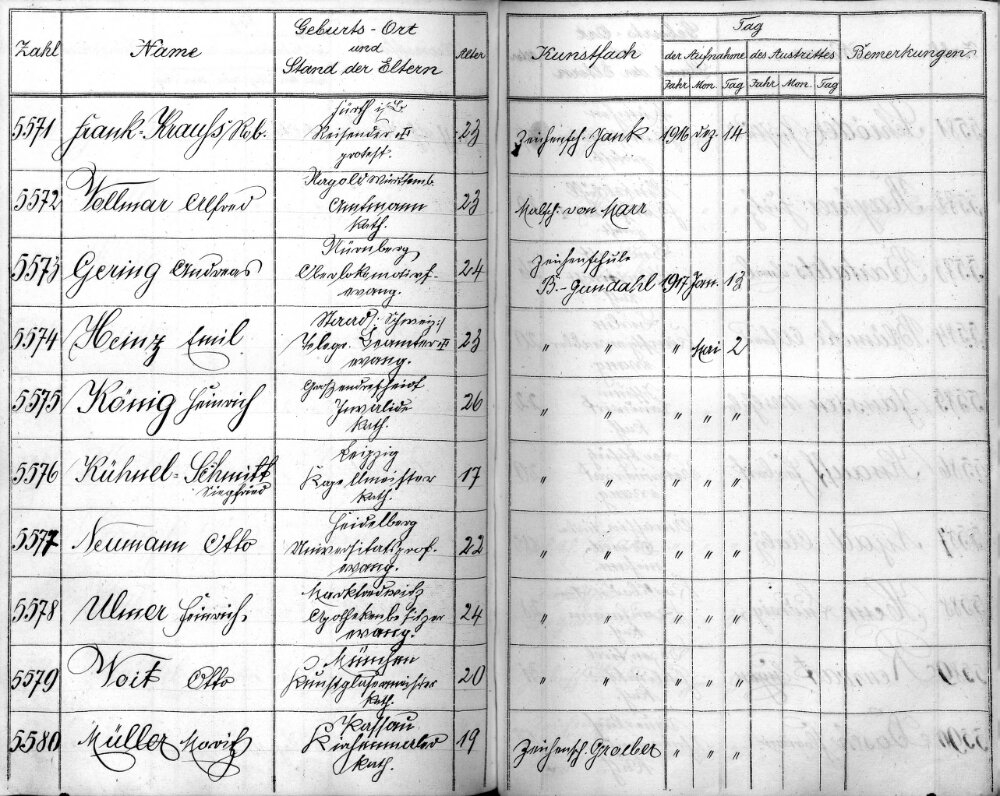 Zahl
Name
Geburts-Ort
und
Stand der Eltern
Alter
Kunstfach
Tag
der Aufnahme
des Austrittes
Bemerkungen
Jahr Mon. Tag Jahr Mon. Tag
5571 Frank-Krauss Rob.
Fürth
Reisender
protest.
23
Zeichensch. Jank 1916 Dez. 14
5572 Vollmar Alfred
Nagold Württemb.
Amtmann
kath.
23
Malsch. von Marr
5573 Gering Andreas
Nürnberg
evang.
24
Zeichenschule
B.-Gundahl 1917 Jan. 13
5574 Heinz Emil
Schweiz
Telegr. Beamter
evang.
23
" " " Mai 2
5575 König Heinrich
Invalide
kath.
26
" " " " "
5576 Kühnel-Schmitt
Siegfried
Leipzig
Kapellmeister
kath.
17
" " " " "
5577 Neumann Otto
Heidelberg
Universitätsprof.
evang.
22
" " " " "
5578 Ulmer Heinrich
Marktredwitz
Apothekenbesitzer
evang.
24
" " " " "
5579 Voit Otto
München
Kunstglasermeister
kath.
20
" " " " "
5580 Müller Moritz
Passau
kath.
19
Zeichensch. Groeber " " "